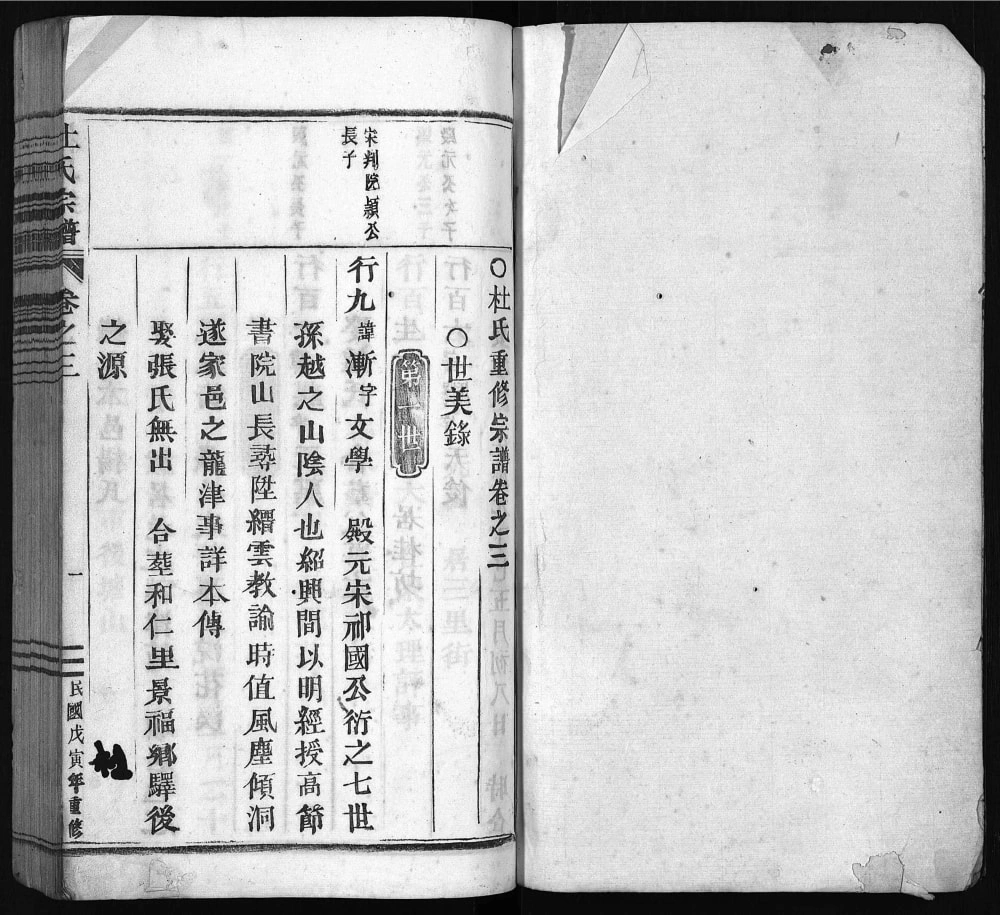 ○杜氏重修宗譜卷之三
○世美錄
第一世
宋判院頴公
長子
行九諱漸字文學　殿元宋祁國公衍之七世
孫越之山陰人也紹興間以明經授高節
書院山長尋陞縉雲教諭時值風塵傾洞
遂家邑之龍津事詳本傳
娶張氏無出　合塟和仁里景福鄉驛後
之源
杜氏宗譜
卷之三
一
民國戊寅年重修
杜